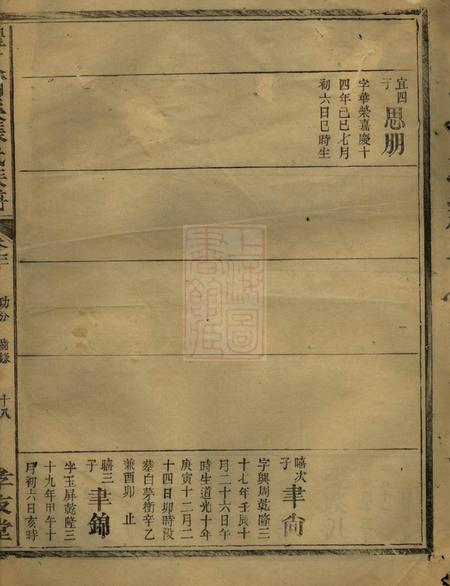 宜四子
思朋
字華榮嘉慶十
四年己巳七月
初六日巳時生
嘻次子
聿尚
字興周乾隆三
十七年壬辰十
月二十六日午
時生道光十年
庚寅十二月二
十四日卯時沒
葬白茅衝辛乙
兼酉卯 止
嘻三子
聿錦
字玉屏乾隆三
十九年甲午十
月初六日亥時
卷三
十八
孝友堂
上海圖書館藏